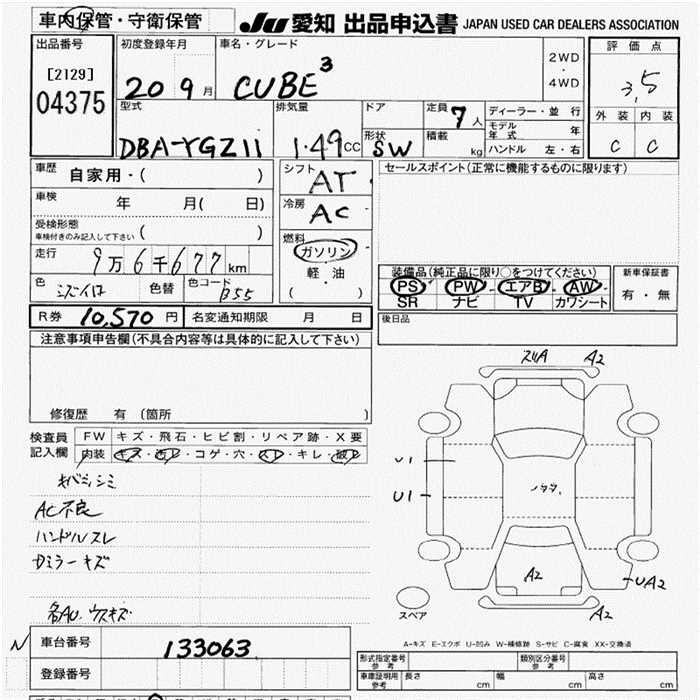 車内保管・守衛保管
JU 愛知 出品申込書 JAPAN USED CAR DEALERS ASSOCIATION
出品番号
[2129]
04375
初度登録年月
20 9 月
車名・グレード
CUBE³
2WD
・
4WD
評価点
3.5
外装 内装
C C
型式
DBA-YGZ11
排気量
1.49 CC
ドア
形状
SW
定員 7 人
積載 kg
ディーラー・並行
モデル年式 年
ハンドル 左・右
車歴 自家用・( )
車検 年 月( 日)
受検形態
車検付きのみ記入して下さい ( )
走行 9万6千677 km
色 ミズイロ 色替 色コード B55
シフト
AT
冷房
AC
燃料
ガソリン
軽・油
( )
セールスポイント(正常に機能するものに限ります)
装備品(純正品に限り○をつけてください)
PS PW エアB AW
SR ナビ TV カワシート
新車保証書
有・無
R券 10,570 円 名変通知期限 月 日
後日品
注意事項申告欄(不具合内容等は具体的に記入して下さい)
修復歴 有 (箇所 )
検査員記入欄
FW キズ・飛石・ヒビ割・リペア跡・X要
内装 キズ・汚レ・コゲ・穴・スレ・キレ・破レ
キバミ、シミ
AC不良
ハンドルスレ
Dミラーキズ
各AU. ウスキズ
A2
U1
U1
A2
UA2
A2
スペア
A-キズ E-エクボ U-凹み W-補修跡 S-サビ C-腐食 XX-交換済
N 車台番号 133063
登録番号
形式指定番号 参考
類別区分番号 参考
車庫証明用 参考 長さ cm 幅 cm 高さ cm